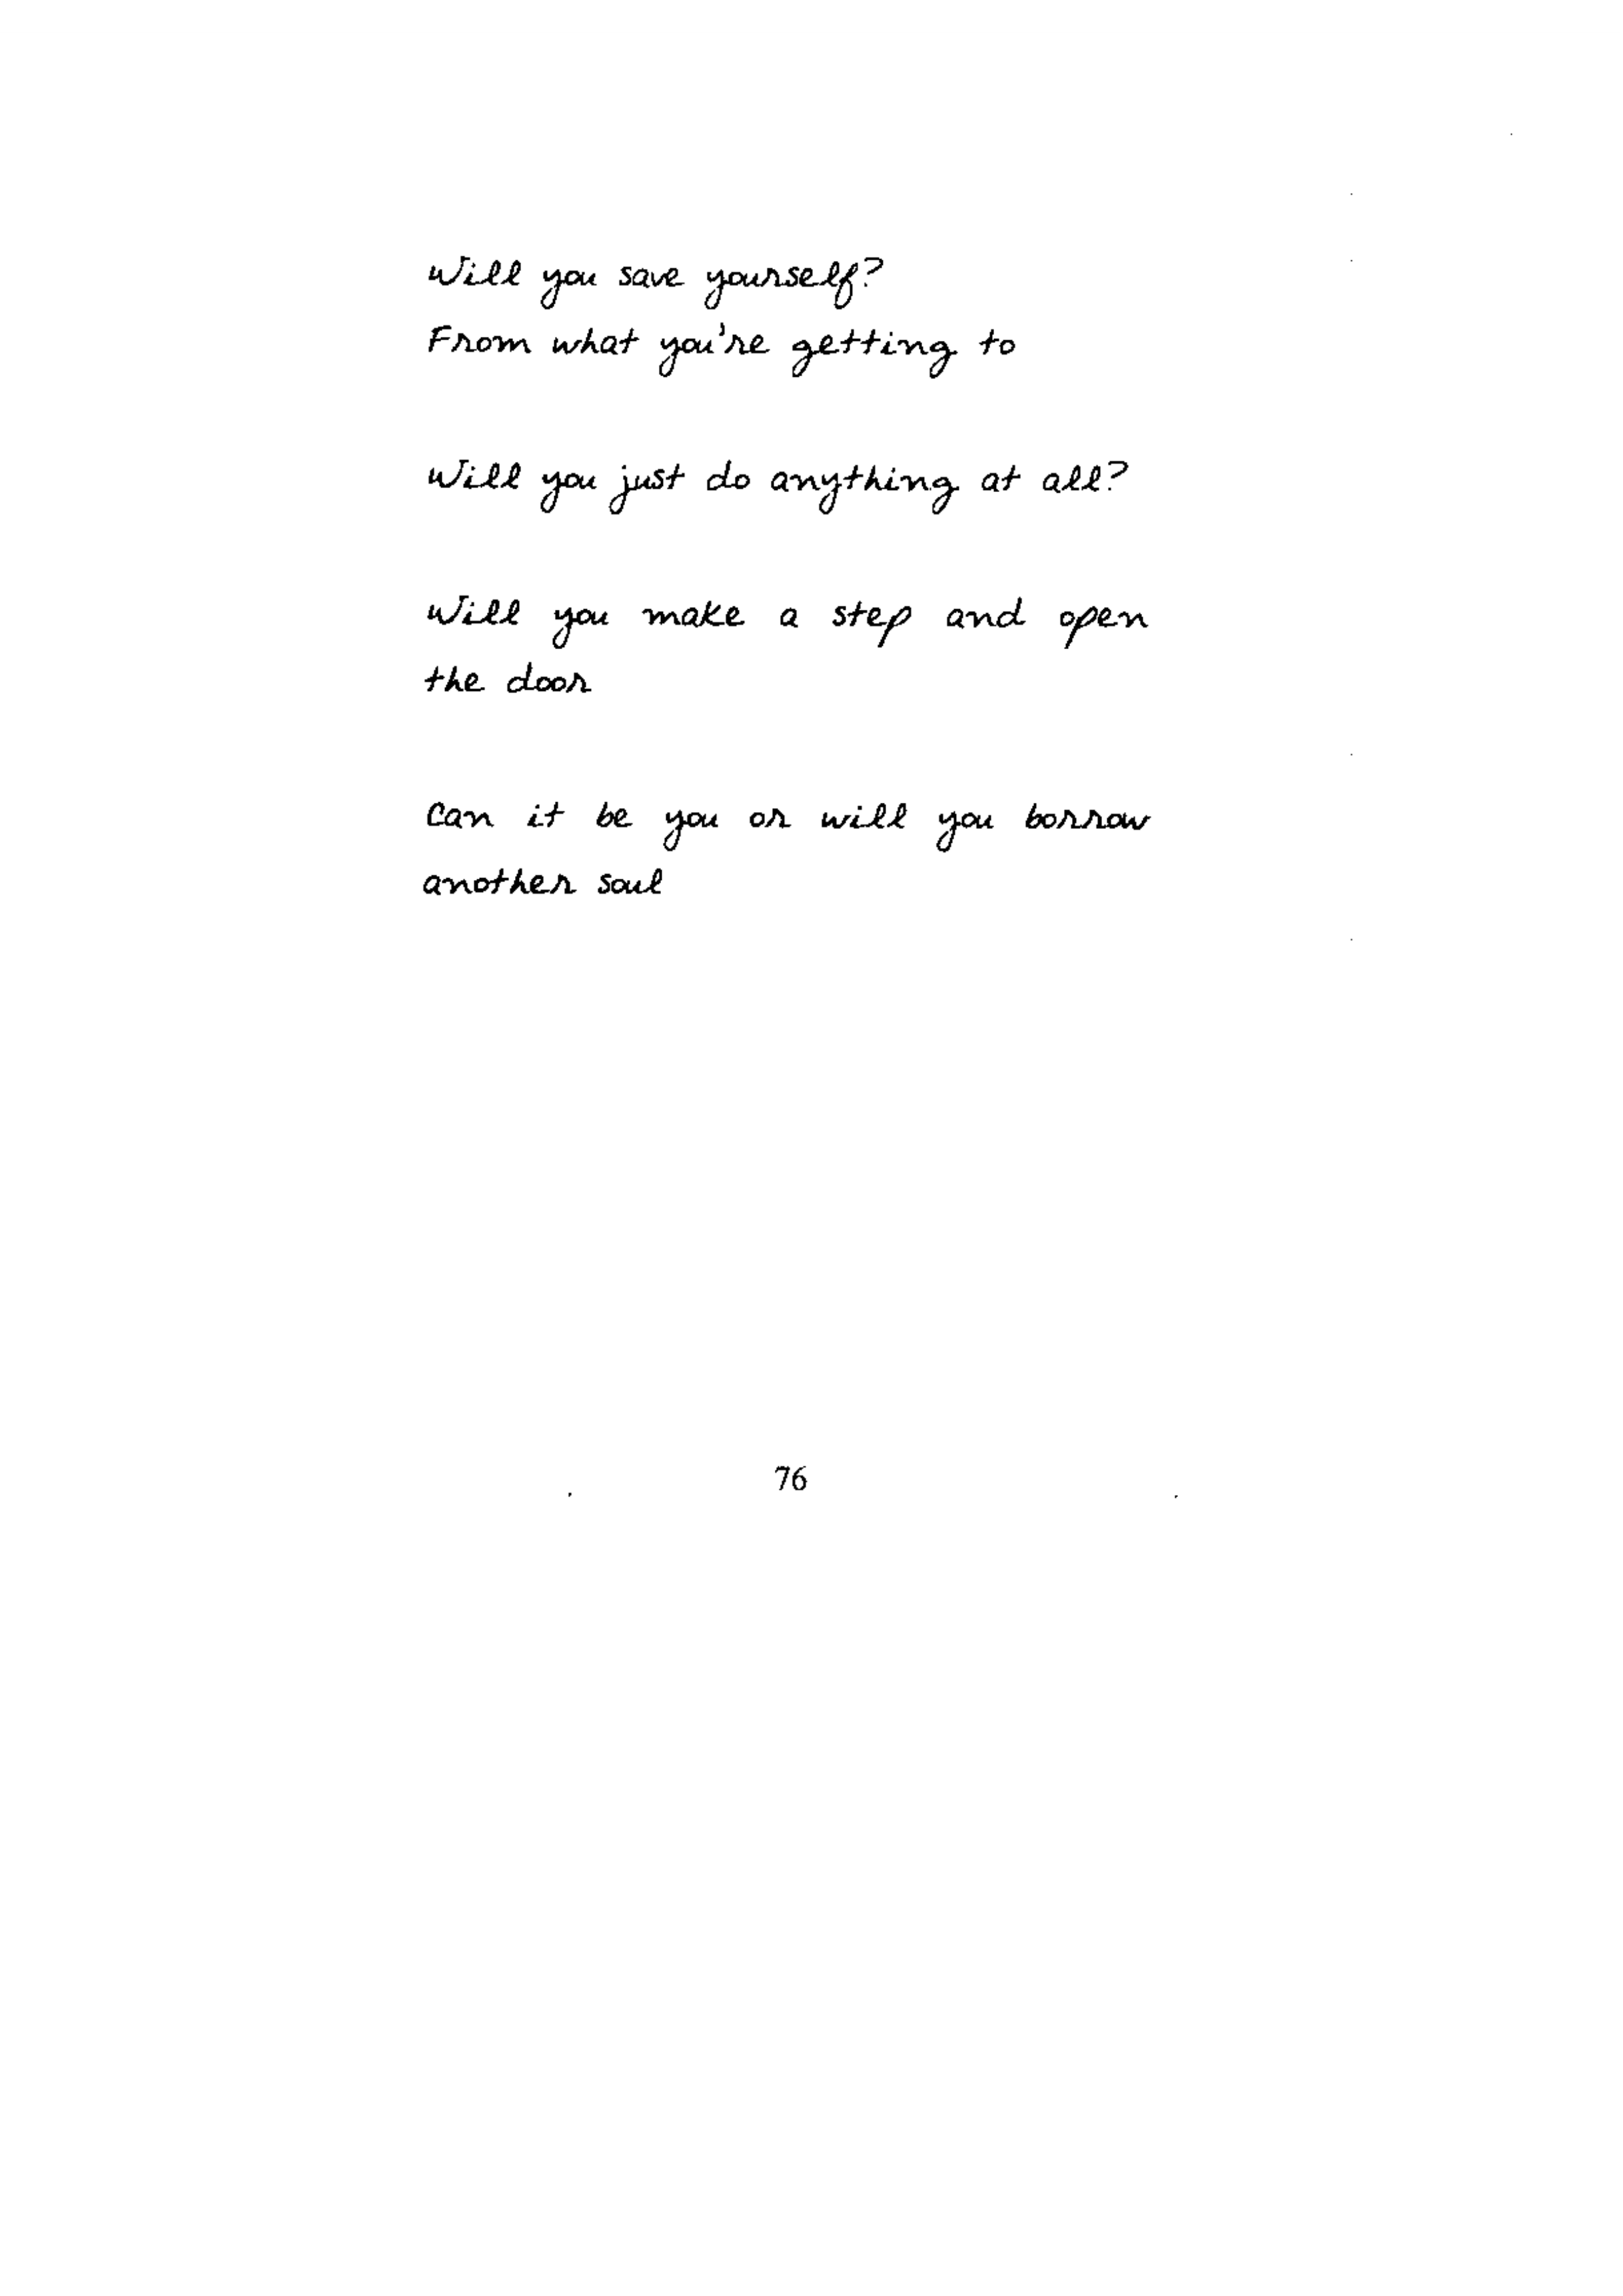 Will you save yourself?
From what you're getting to
Will you just do anything at all?
Will you make a step and open
the door
Can it be you or will you borrow
another soul
76